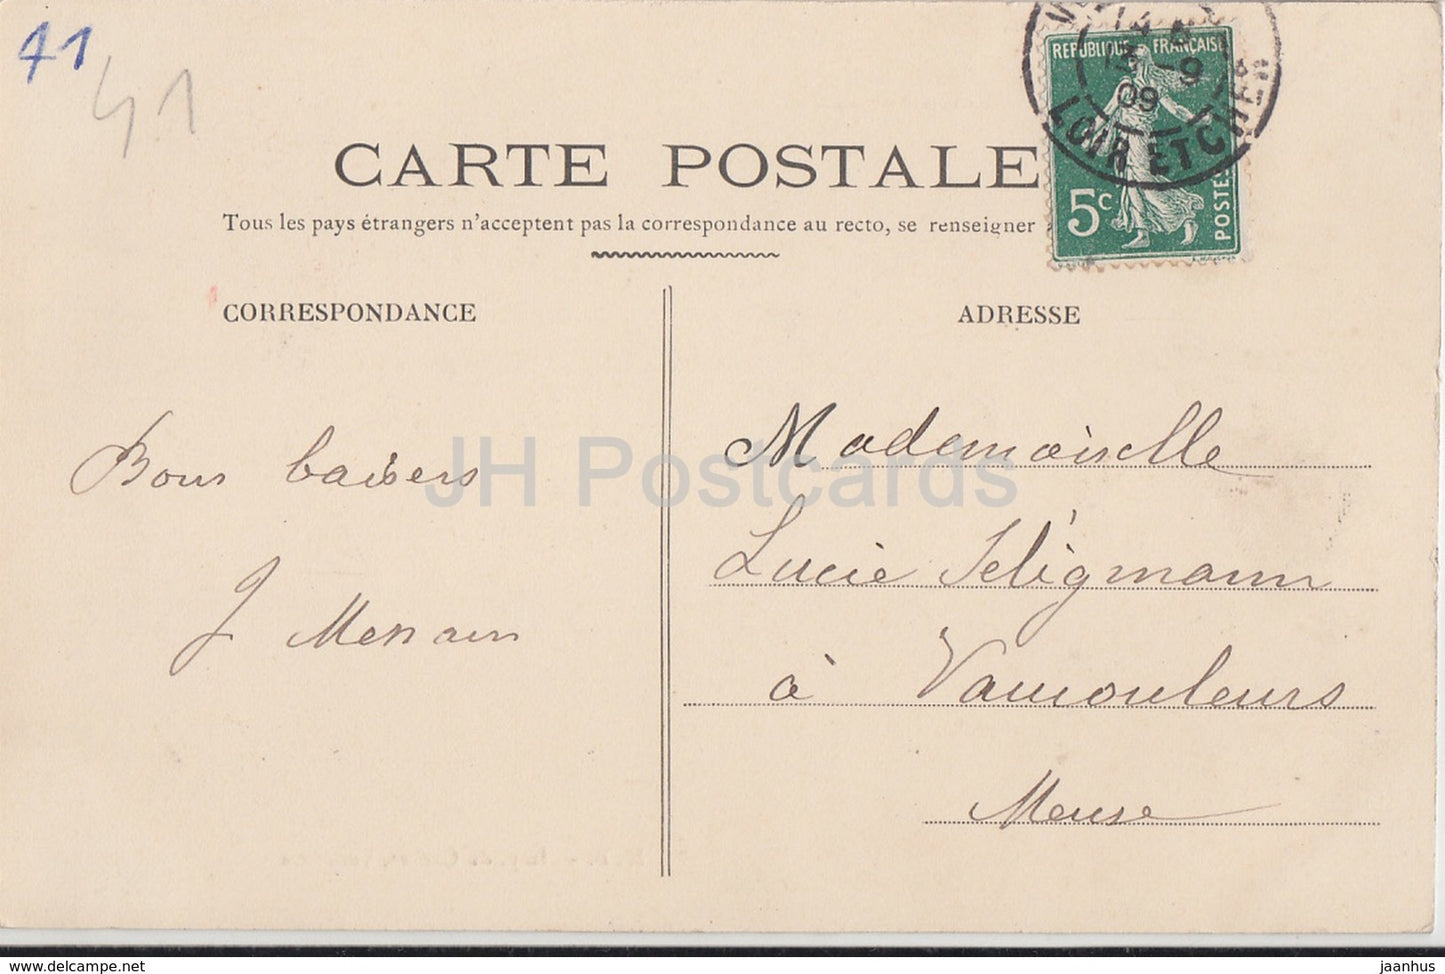 41
41
RÉPUBLIQUE FRANÇAISE
5c
POSTES
09
LOIR ET CHER
CARTE POSTALE
Tous les pays étrangers n'acceptent pas la correspondance au recto, se renseigner
CORRESPONDANCE
ADRESSE
Bons baisers
J
Mademoiselle
Lucie Séligmann
à Vaucouleurs
Meuse
JH Postcards
www.delcampe.net
jaanhus